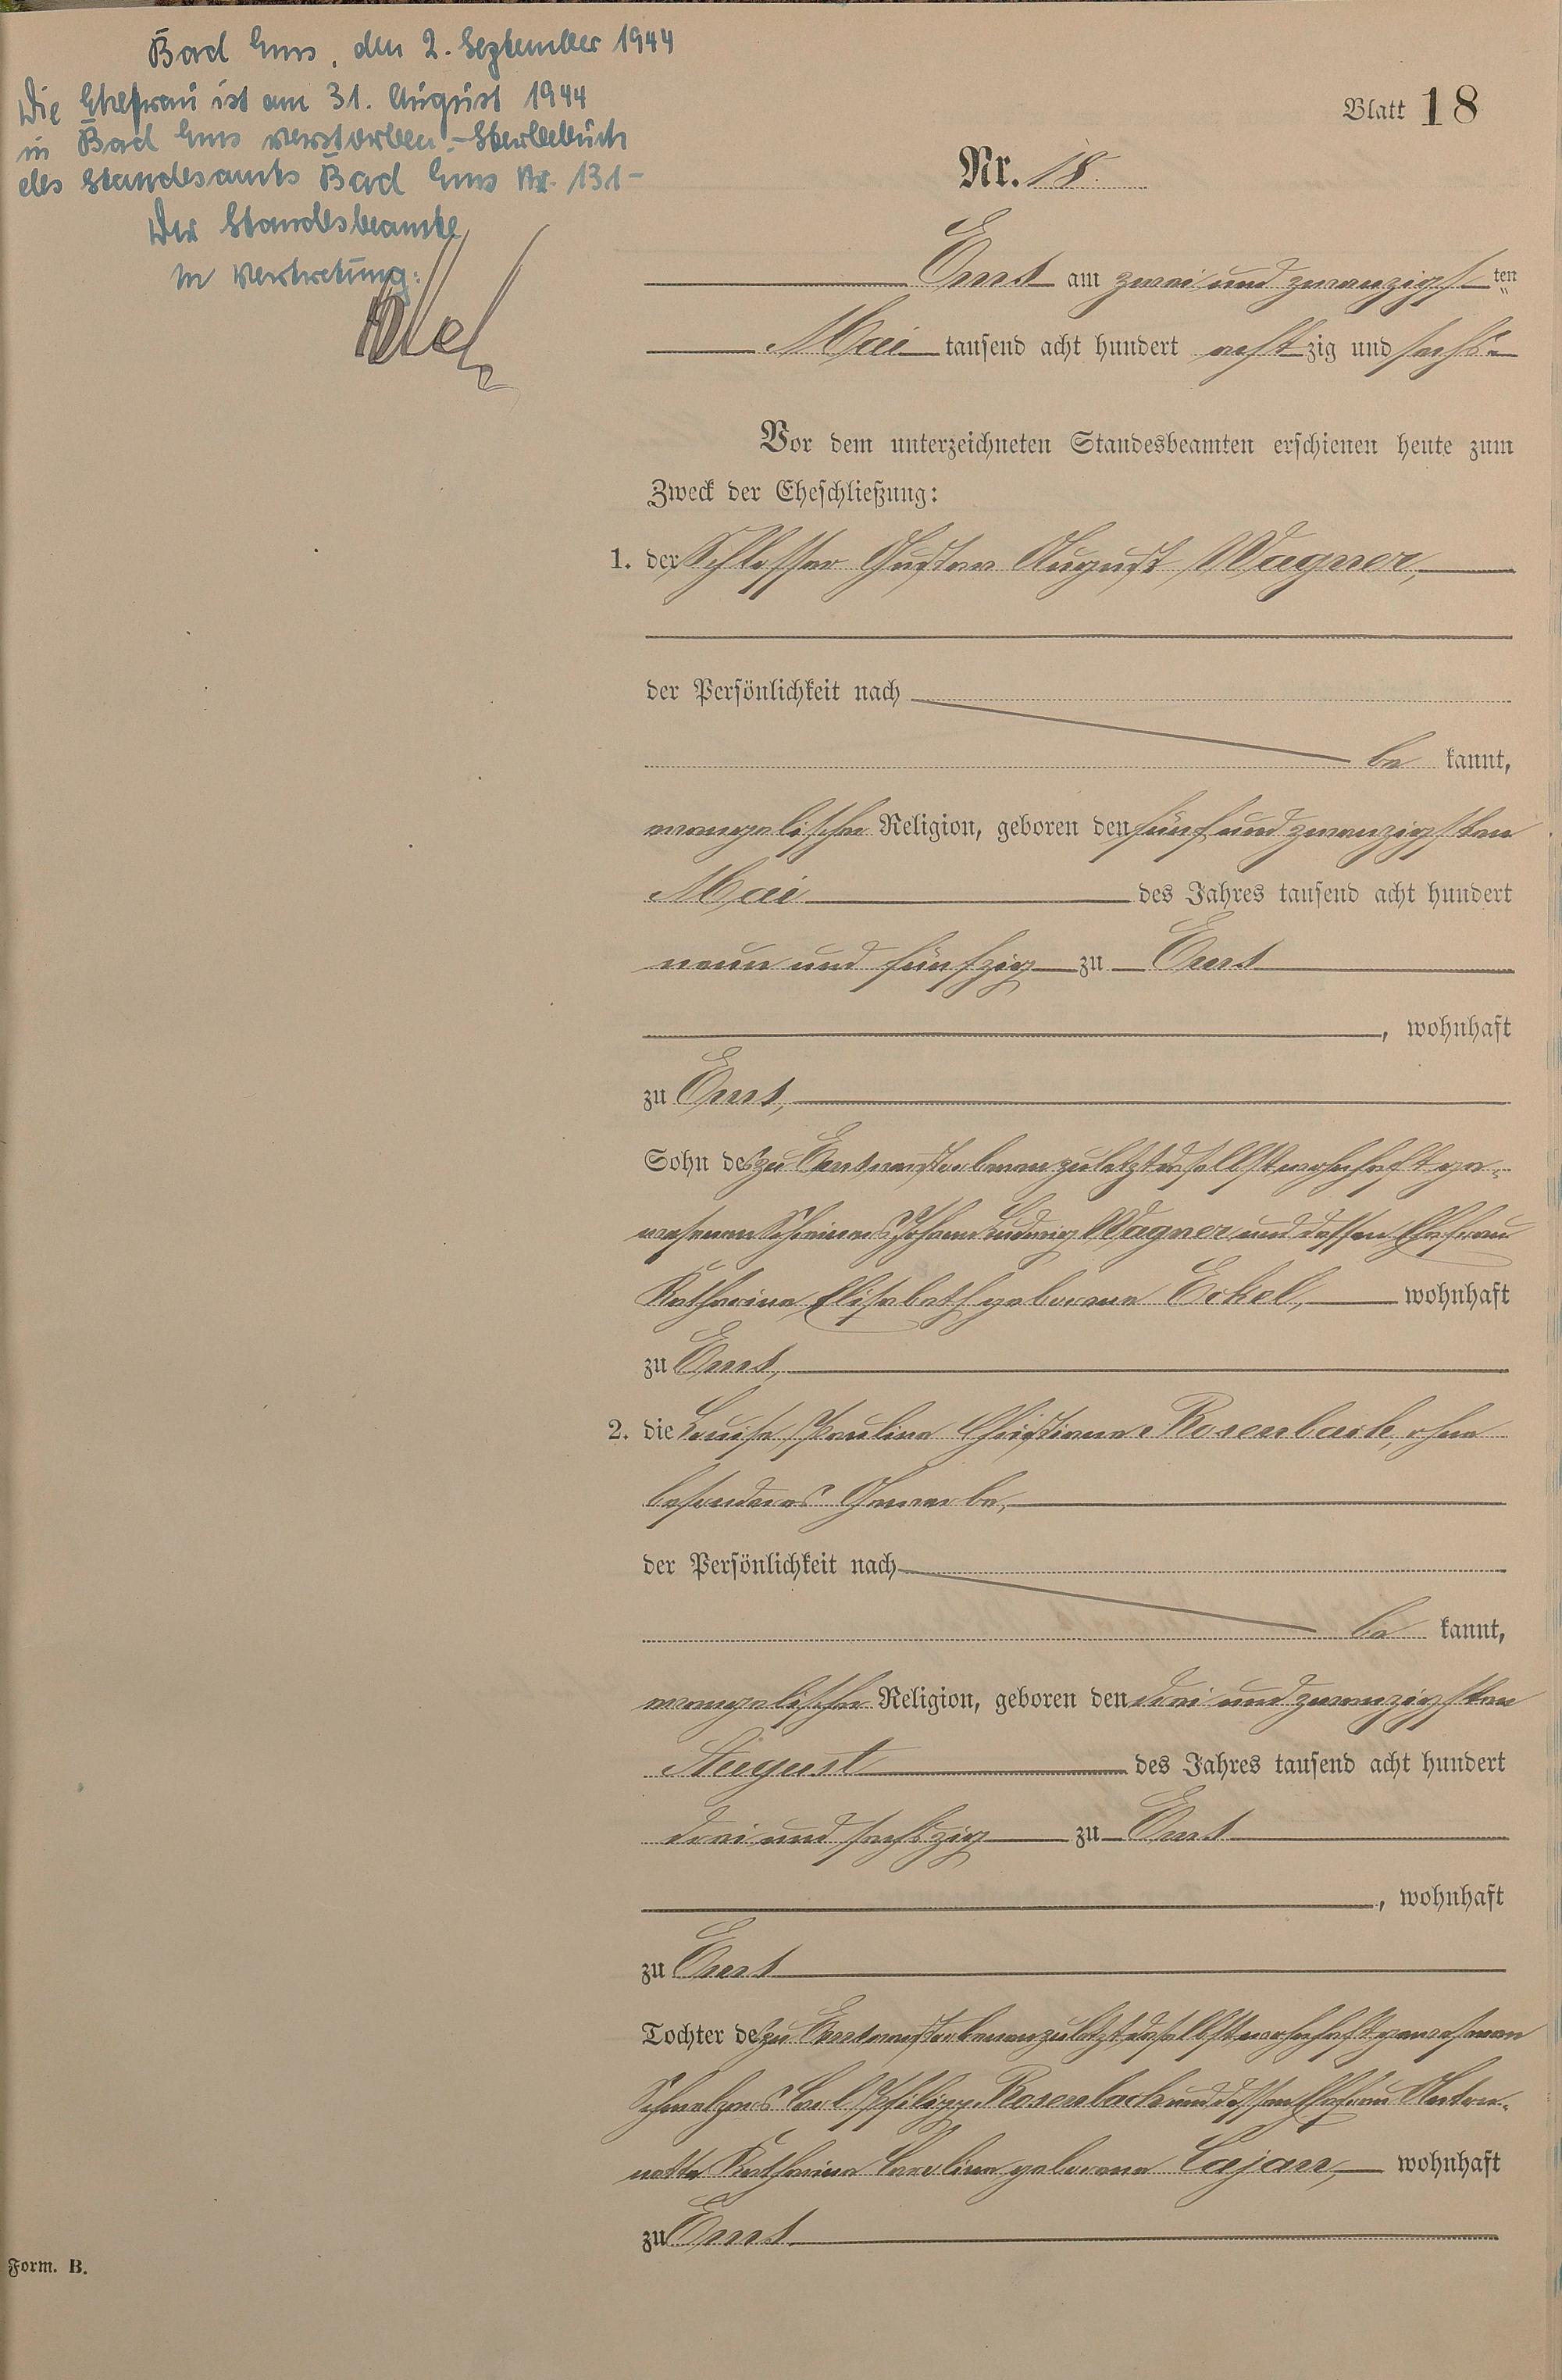 Bad Ems, den 2. September 1944
Die Ehefrau ist am 31. August 1944
in Bad Ems verstorben.- Sterbebuch
des Standesamts Bad Ems Nr. 131-
Der Standesbeamte
In Vertretung:
Blatt 18
Nr. 18.
Ems am zwei und zwanzigsten
Mai tausend acht hundert achtzig und sechs.
Vor dem unterzeichneten Standesbeamten erschienen heute zum
Zweck der Eheschließung:
1. der Schlosser Gustav August Wagner,
der Persönlichkeit nach
be kannt,
evangelischer Religion, geboren den fünf und zwanzigsten
Mai des Jahres tausend acht hundert
neun und fünfzig zu Ems
, wohnhaft
zu Ems,
Sohn des zu Ems verstorbenen zuletzt daselbst wohnhaft ge-
wesenen Schreiners Johann Ludwig Wagner und dessen Ehefrau
Katharina Elisabeth geborene Eckel, wohnhaft
zu Ems,
2. die Louise Pauline Christiane Rosenbach, ohne
besonderes Gewerbe,
der Persönlichkeit nach
be kannt,
evangelischer Religion, geboren den drei und zwanzigsten
August des Jahres tausend acht hundert
drei und sechszig zu Ems
, wohnhaft
zu Ems
Tochter des zu Ems verstorbenen zuletzt daselbst wohnhaft gewesenen
Schmelzers Carl Philipp Rosenbach und dessen Ehefrau Antou-
nette Katharina Caroline geborene Cajan, wohnhaft
zu Ems.
Form. B.